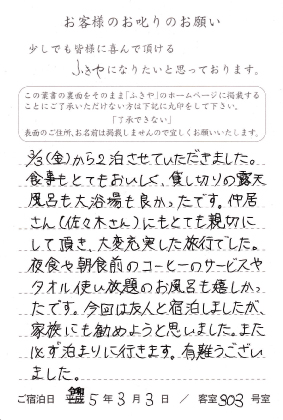 お客様のお叱りのお願い
少しでも皆様に喜んで頂ける
ふきやになりたいと思っております。
この葉書の裏面をそのまま「ふきや」のホームページに掲載する
ことにご了承いただけない方は下記に丸印をして下さい。
「了承できない」
表面のご住所、お名前は掲載しませんので宜しくお願いいたします。
3/3(金)から2泊させていただきました。
食事もとてもおいしく、貸し切りの露天
風呂も大浴場も良かったです。仲居
さん(佐々木さん)にもとても親切に
して頂き、大変充実した旅行でした。
夜食や朝食前のコーヒーのサービスや
タオル使い放題のお風呂も嬉しかっ
たです。今回は友人と宿泊しましたが、
家族にも勧めようと思いました。また
必ず泊まりに行きます。有難うござい
ました。
ご宿泊日 令和5年3月3日 / 客室903号室